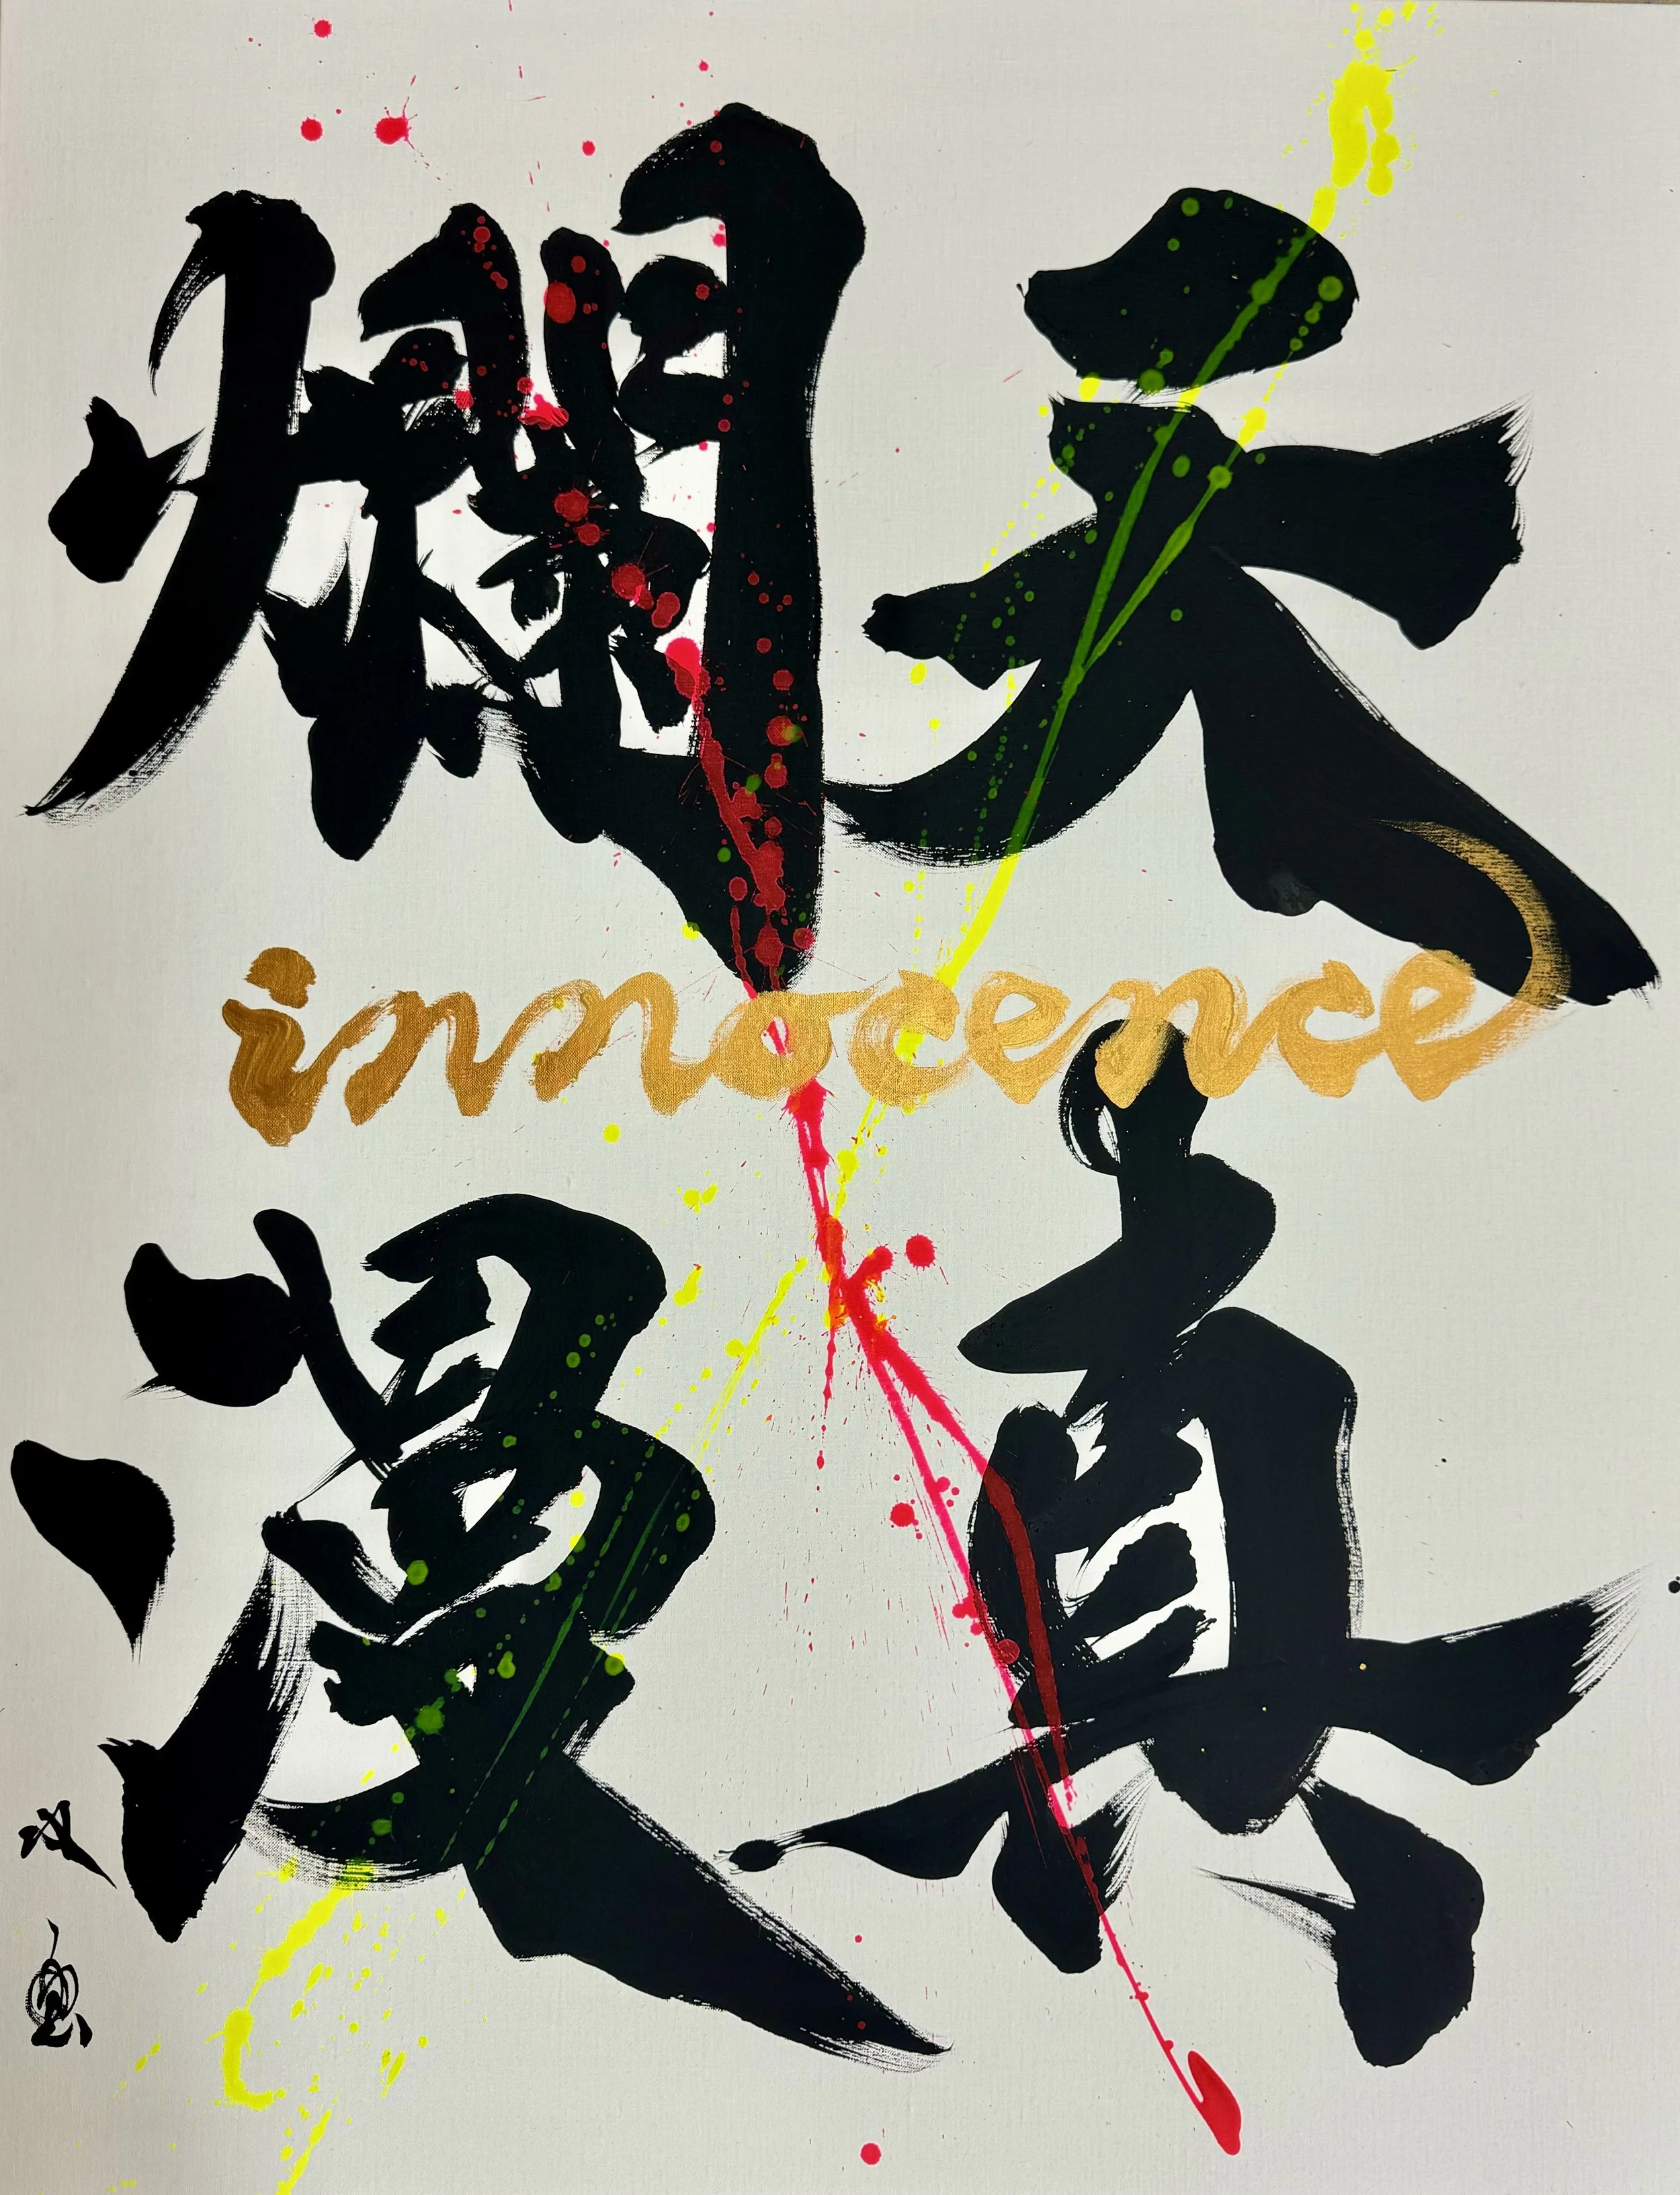 天真
爛漫
innocence